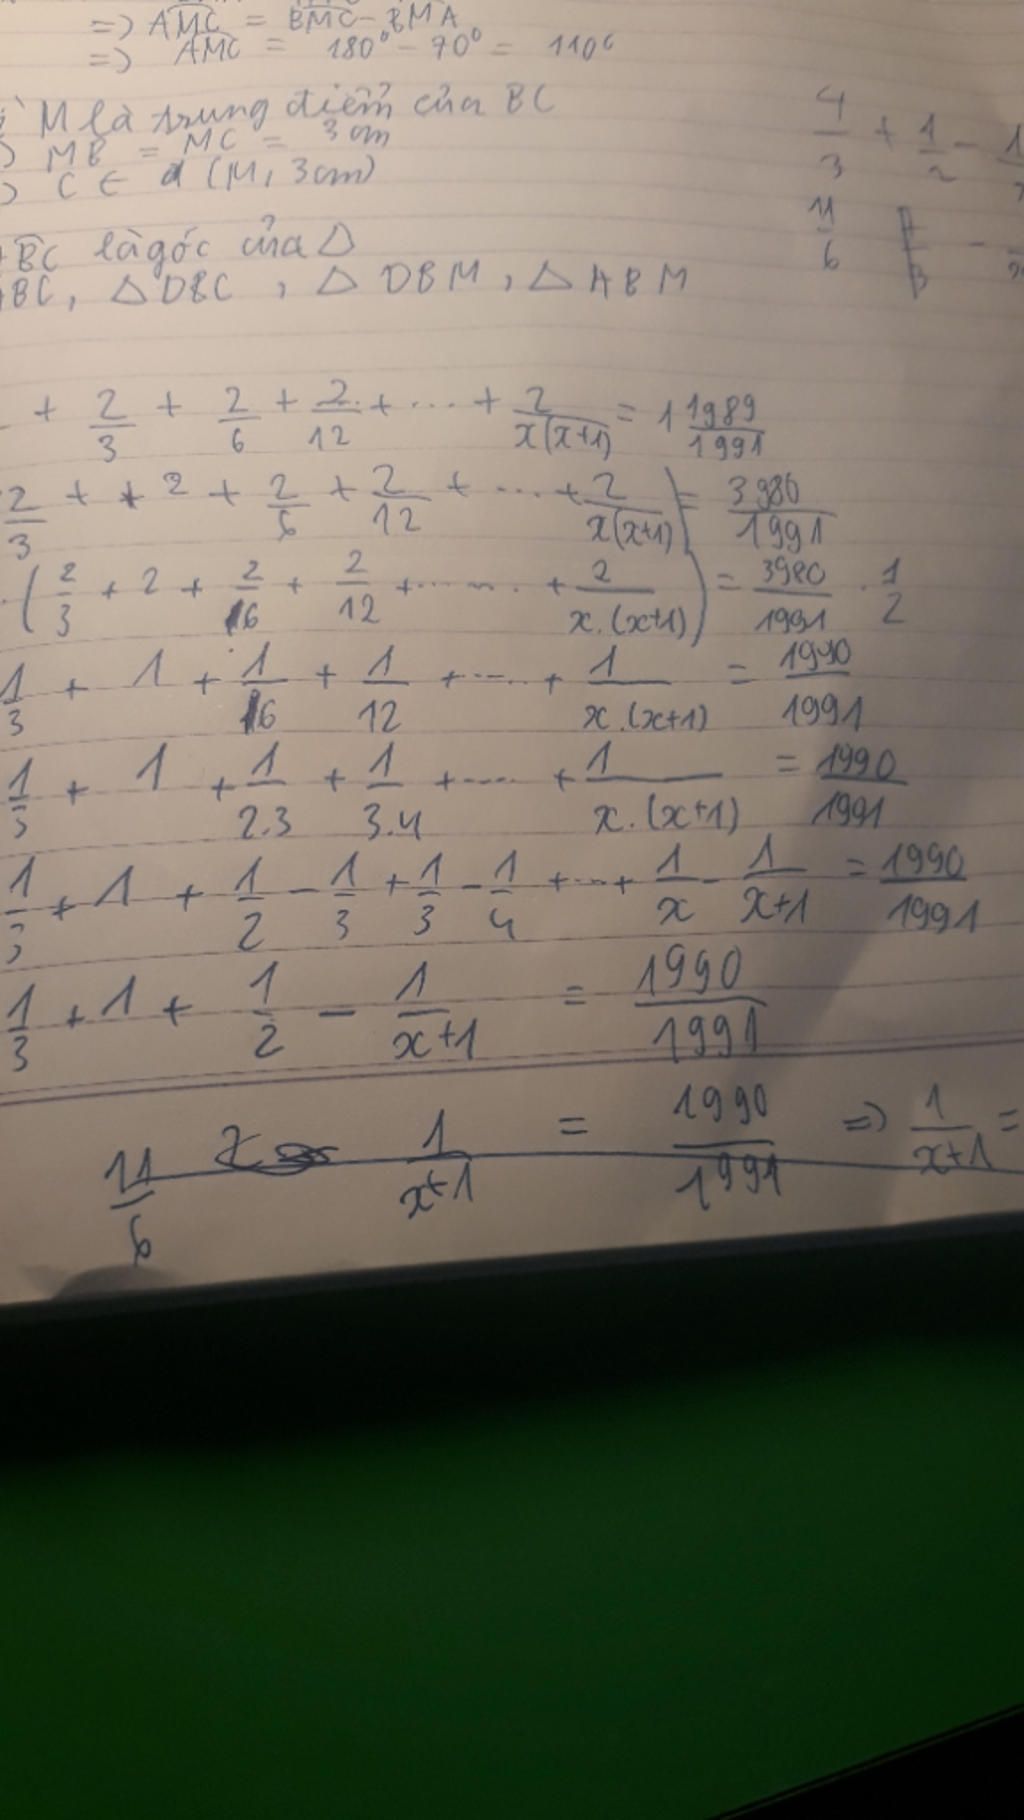 => AMC = BMC - BMA
=> AMC = 180° - 70° = 110°
M là trung điểm của BC
MB = MC = 3 cm
C ∈ d (M, 3cm)
BC là góc của △
BC, △ DBC, △ DBM, △ ABM
4/3 + 1/2 -
11/6
+ 2/3 + 2/6 + 2/12 + ... + 2/x(x+1) = 1 1989/1991
2/3 + 2 + 2/6 + 2/12 + ... + 2/x(x+1)) = 3980/1991
(2/3 + 2 + 2/6 + 2/12 + ... + 2/x.(x+1)) = 3980/1991 . 1/2
1/3 + 1 + 1/6 + 1/12 + ... + 1/x.(x+1) = 1990/1991
1/3 + 1 + 1/2.3 + 1/3.4 + ... + 1/x.(x+1) = 1990/1991
1/3 + 1 + 1/2 - 1/3 + 1/3 - 1/4 + ... + 1/x - 1/x+1 = 1990/1991
1/3 + 1 + 1/2 - 1/x+1 = 1990/1991
11/6 1/x+1 = 1990/1991 => 1/x+1 =